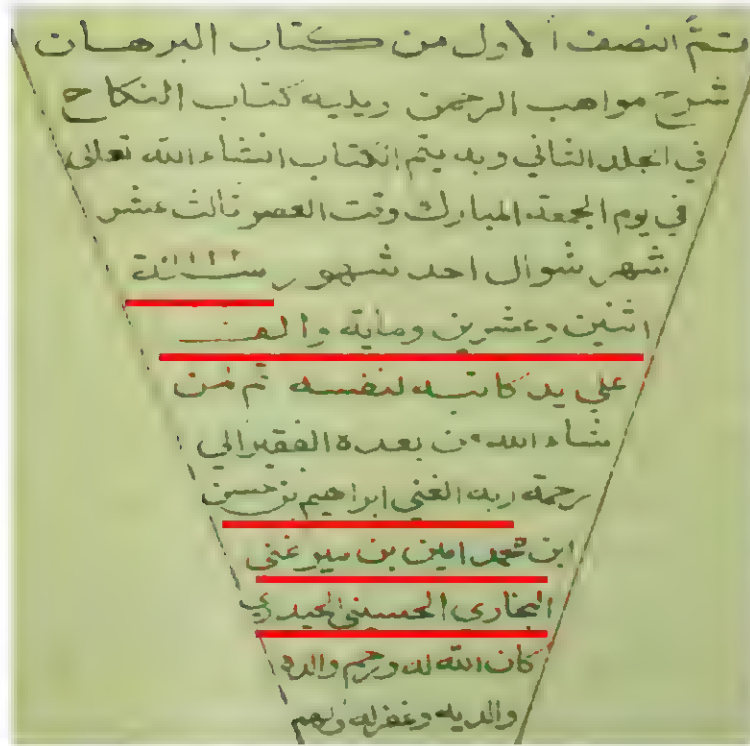 تم النصف الاول من كتاب البرهان
شرح مواهب الرحمن ويليه كتاب النكاح
في المجلد الثاني وبه يتم الكتاب انشاء الله تعالى
في يوم الجمعة المبارك وقت العصر ثالث عشر
شهر شوال احد شهور سنة
اثنين وعشرين وماية والف
على يد كاتبه لنفسه ثم لمن
شاء الله من بعده الفقير الى
رحمة ربه الغني ابراهيم بن حسن
ابن محمد امين بن مير غني
البخاري الحسيني الحيدري
كان الله له ورحم والده
والديه وغفر له ولهم